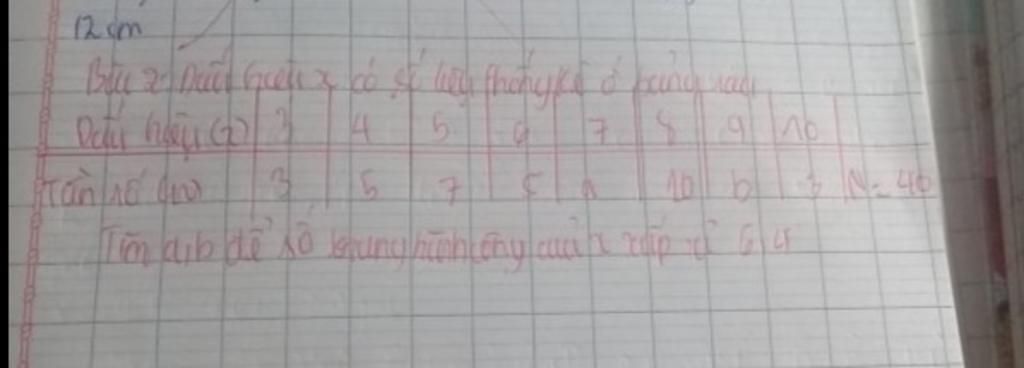 12 cm
Bài 2: Dấu hiệu x có số liệu thống kê ở bảng sau
Dấu hiệu (x) 3 4 5 6 7 8 9 10
Tần số (n) 3 5 7 5 a 10 b 3 N = 40
Tìm a,b để số trung bình cộng của x xấp xỉ 6,4